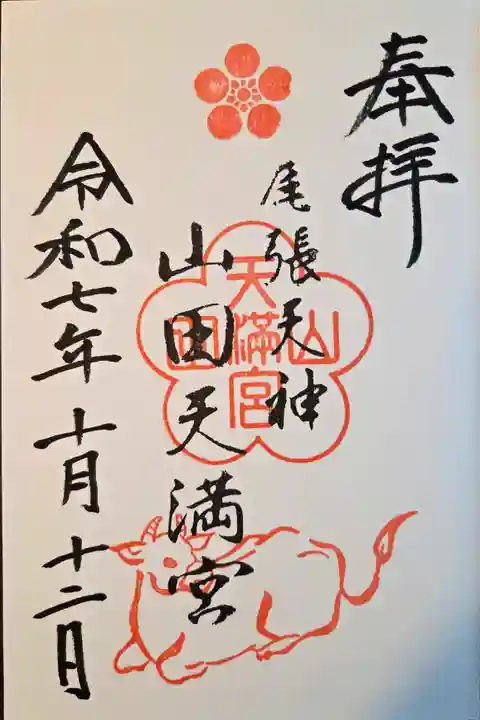 奉拝
尾張天神
山田天満宮
山田
天満宮
令和七年十月十二日